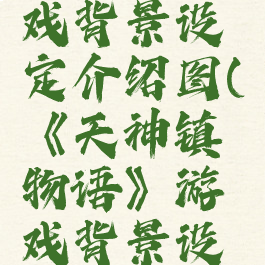 戏背景设
定介绍图(
《天神镇
物语》游
戏背景设